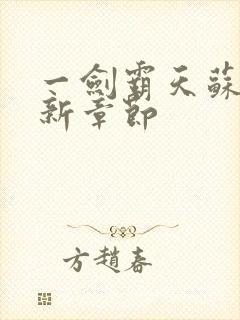 一劍霸天蘇
新章節
方趙春